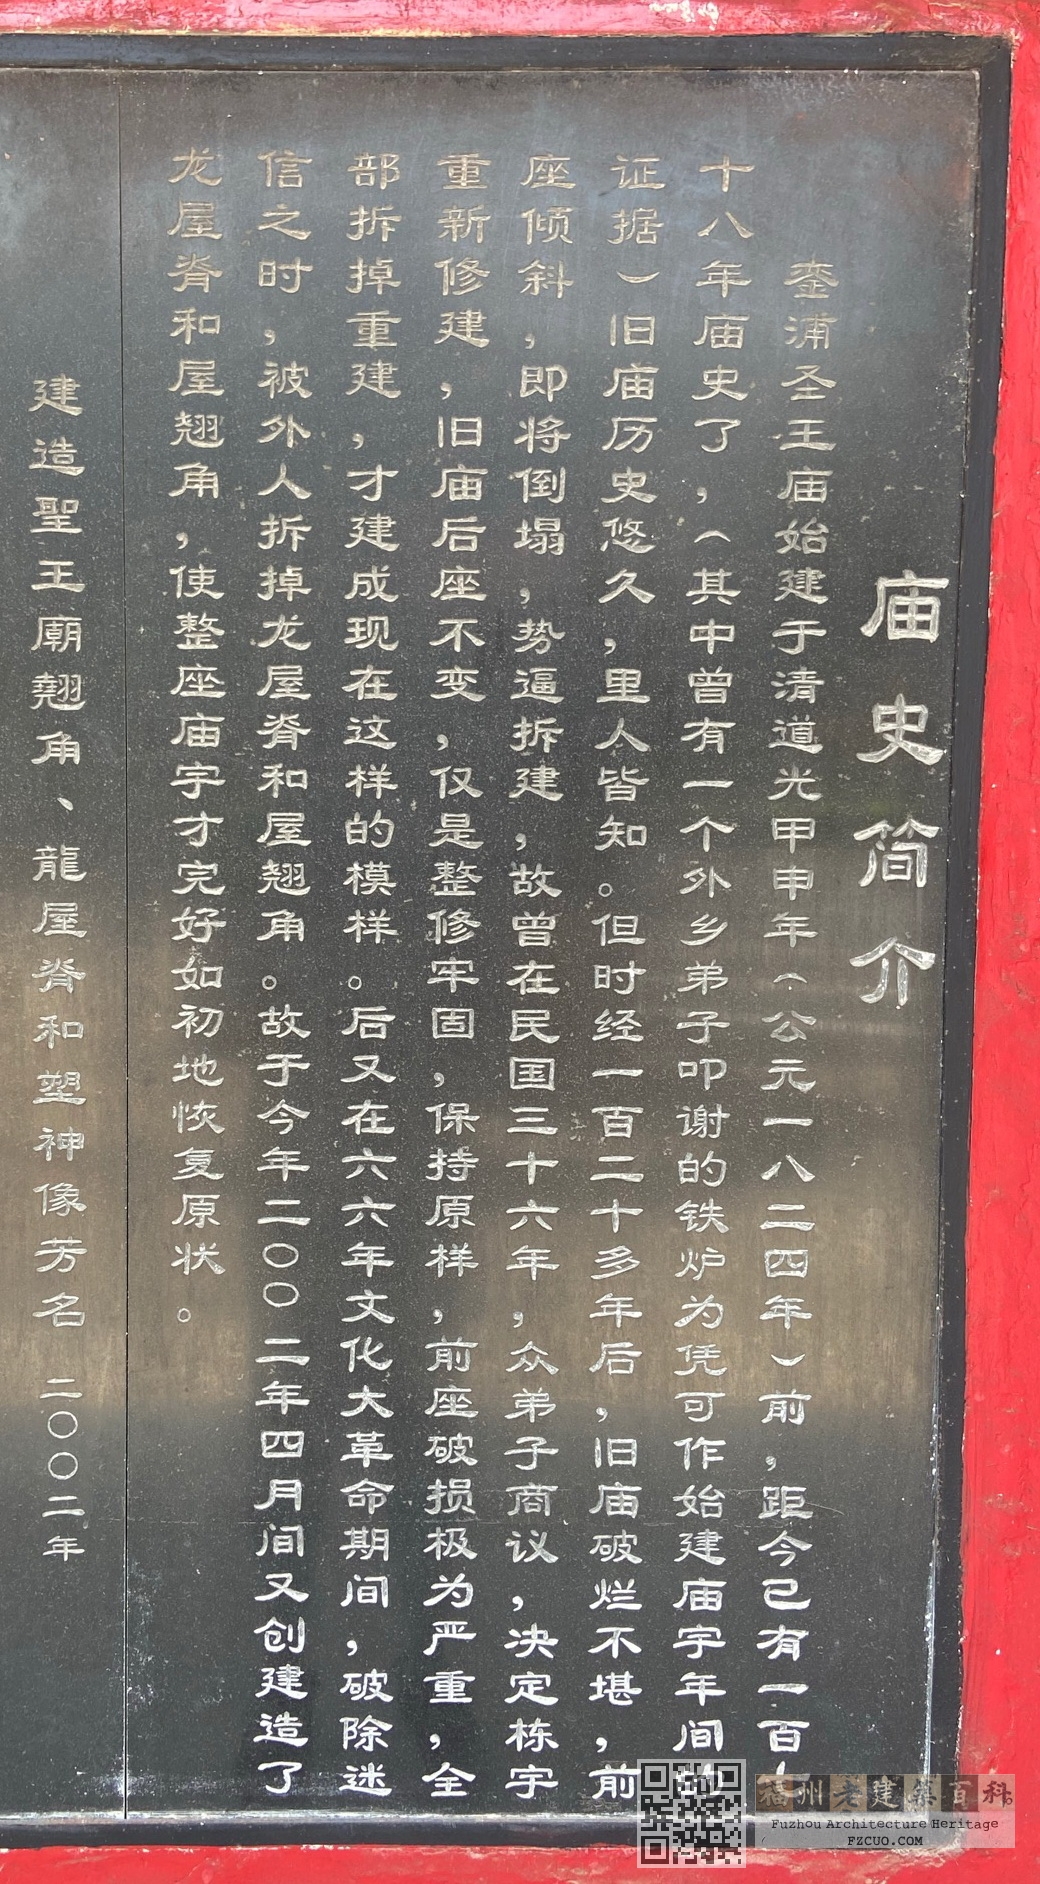 庙史简介
銮浦圣王庙始建于清道光甲申年（公元一八二四年）前，距今已有一百七
十八年庙史了，（其中曾有一个外乡弟子叩谢的铁炉为凭可作始建庙宇年间的
证据）旧庙历史悠久，里人皆知。但时经一百二十多年后，旧庙破烂不堪，前
座倾斜，即将倒塌，势逼拆建，故曾在民国三十六年，众弟子商议，决定栋宇
重新修建，旧庙后座不变，仅是整修牢固，保持原样，前座破损极为严重，全
部拆掉重建，才建成现在这样的模样。后又在六六年文化大革命期间，破除迷
信之时，被外人拆掉龙屋脊和屋翘角。故于今年二〇〇二年四月间又创建造了
龙屋脊和屋翘角，使整座庙宇才完好如初地恢复原状。
建造聖王廟翹角、龍屋脊和塑神像芳名 二〇〇二年
福州老建筑百科
Fuzhou Architecture Heritage
FZCUO.COM